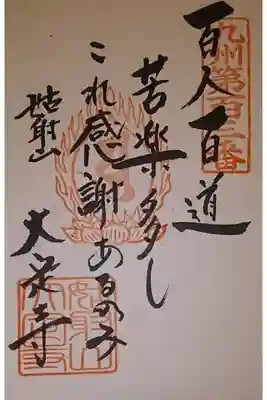 九州第百三番
百人百道
苦楽多し
これ感謝あるのみ
姑射山
大定寺